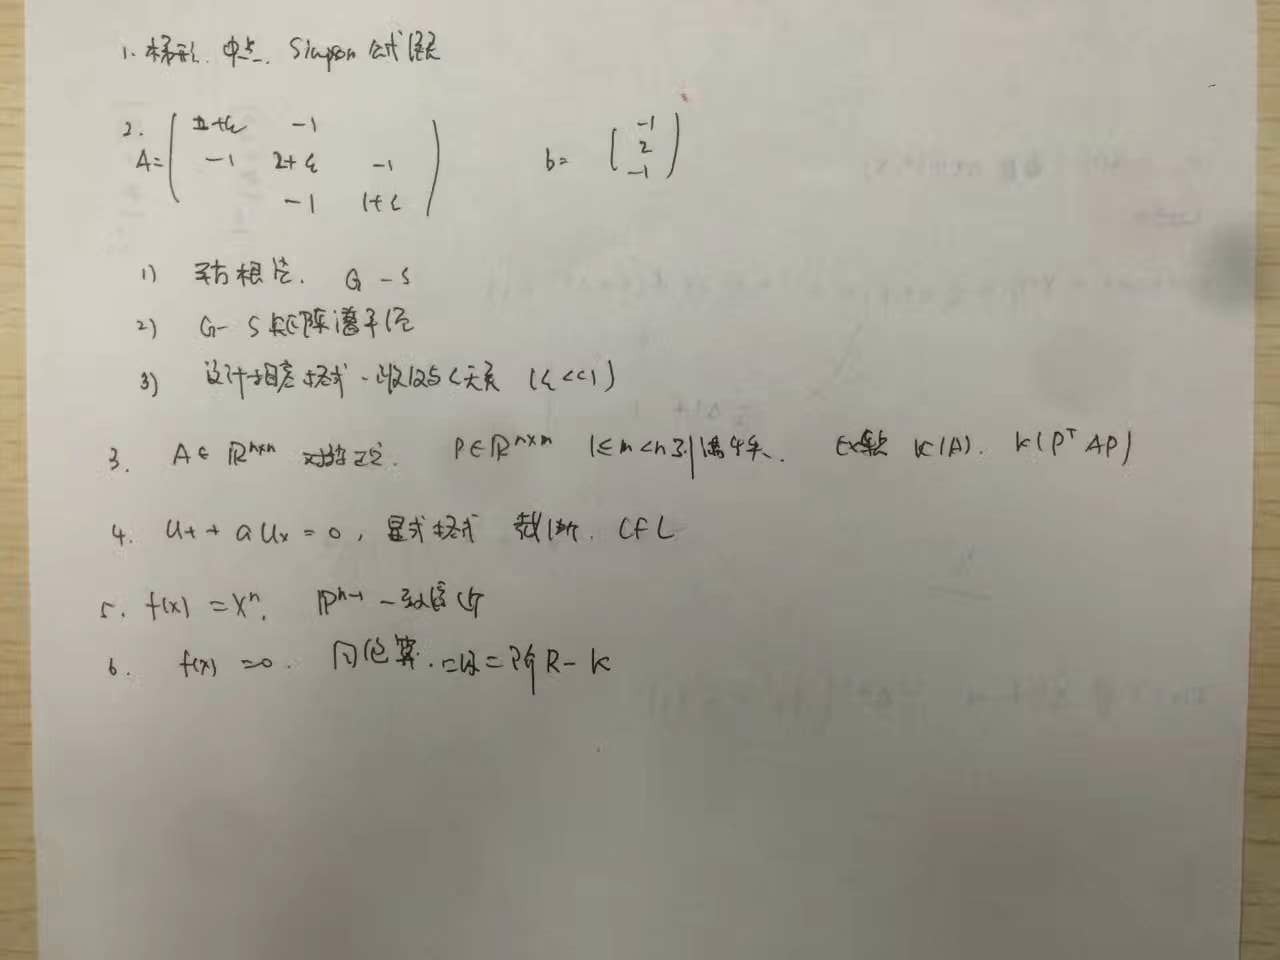 1. 梯形. 中点. Simpson 公式误差
2. A= ( 1+ε -1
-1 2+ε -1
-1 1+ε ) b= ( -1
2
-1 )
1) 平方根法. G - S
2) G- S 矩阵谱半径
3) 设计 格式. 收敛与ε无关 (ε<<1)
3. A∈ ℝⁿˣⁿ 对称正定. P∈ℝⁿˣᵐ 1≤m<n 列满秩. 比较 K(A). K(Pᵀ AP)
4. Ut + a Ux = 0, 显式格式 截断. CFL
5. f(x) = Xⁿ. ℙⁿ⁻¹ 一致逼近
6. f(x) =0. 二阶R- K